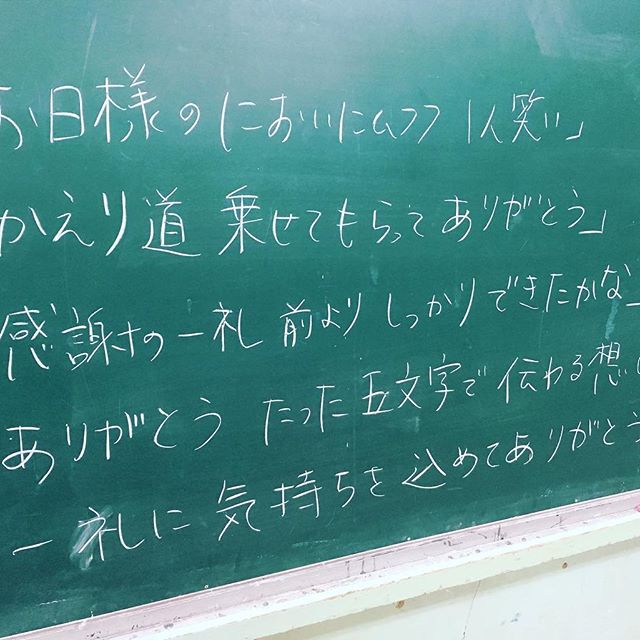 お日様のにおいにムフフ 1人笑い」
かえり道 乗せてもらってありがとう」
感謝の一礼 前より しっかりできたかな
ありがとう たった五文字で 伝わる想い
一礼に 気持ちを込めてありがとう